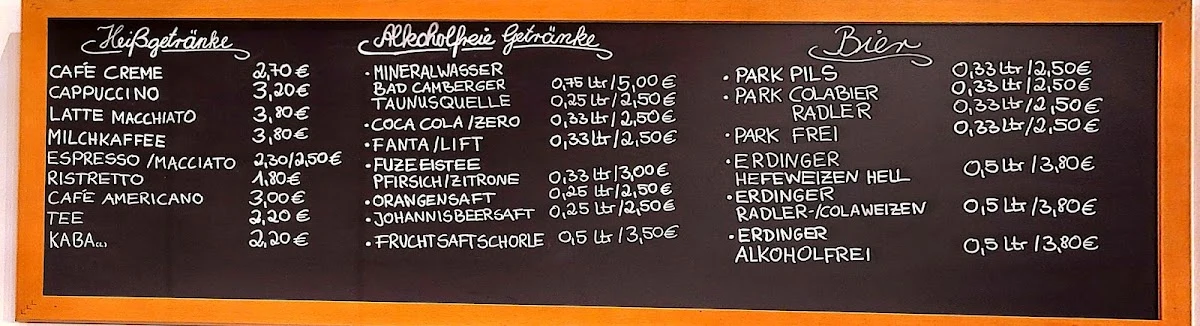 Heißgetränke
CAFÉ CREME 2,70 €
CAPPUCCINO 3,20€
LATTE MACCHIATO 3,80€
MILCHKAFFEE 3,80€
ESPRESSO/MACCIATO 2,30/2,50€
RISTRETTO 1,80€
CAFÉ AMERICANO 3,00€
TEE 2,20€
KABA 2,20€
Alkoholfreie Getränke
• MINERALWASSER
BAD CAMBERGER 0,75 Ltr/5,00€
TAUNUSQUELLE 0,25 Ltr/2,50€
• COCA COLA/ZERO 0,33 Ltr/2,50€
• FANTA/LIFT 0,33 Ltr/2,50€
• FUZEEISTEE
PFIRSICH/ZITRONE 0,33 Ltr/3,00€
• ORANGENSAFT 0,25 Ltr/2,50€
• JOHANNISBEERSAFT 0,25 Ltr/2,50€
• FRUCHTSAFTSCHORLE 0,5 Ltr/3,50€
Bier
• PARK PILS 0,33 Ltr/2,50€
• PARK COLABIER 0,33 Ltr/2,50€
RADLER 0,33 Ltr/2,50€
• PARK FREI 0,33 Ltr/2,50€
• ERDINGER
HEFEWEIZEN HELL 0,5 Ltr/3,80€
• ERDINGER
RADLER-/COLAWEIZEN 0,5 Ltr/3,80€
• ERDINGER
ALKOHOLFREI 0,5 Ltr/3,80€